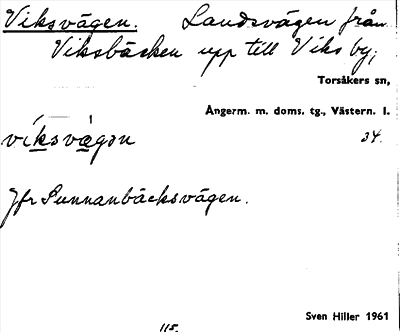 Viksvägen. Landsvägen från
Viksbäcken upp till Viks by;
Torsåkers sn,
Ångerm. m. doms. tg., Västern. l.
víksvàgən 34.
Jfr Sunnanbäcksvägen.
Sven Hiller 1961
115.